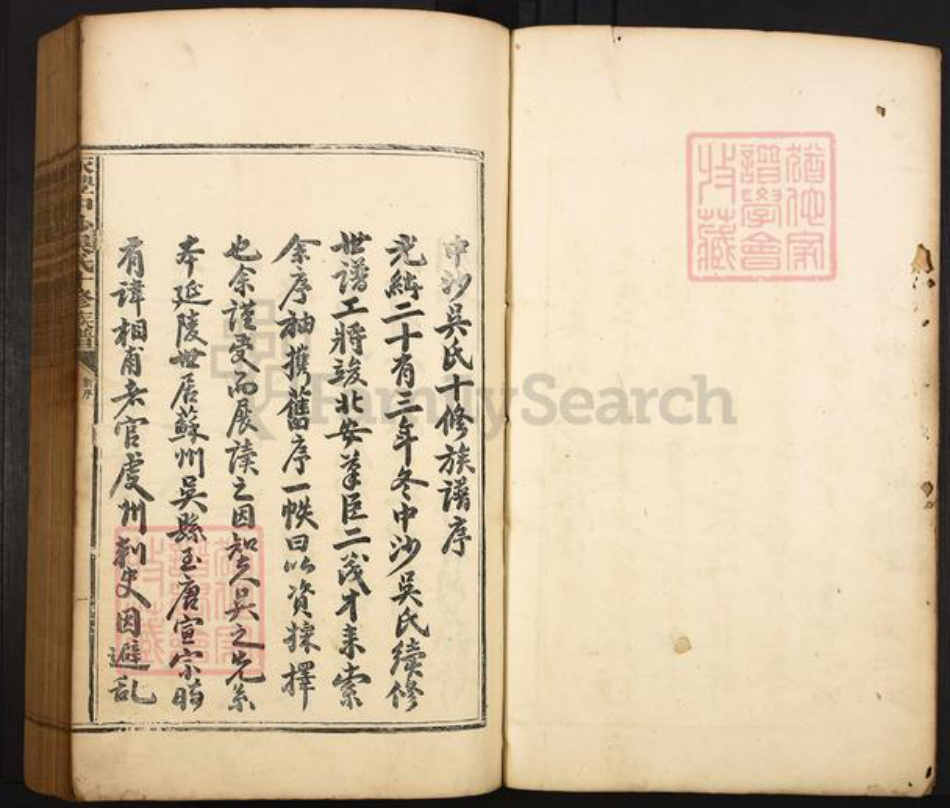 中沙吳氏十修族譜序
光緒二十有三年冬中沙吳氏續修
世譜工將竣北安筆臣二茂才來索
余序袖携舊序一帙曰以資採擇
也余謹受而展讀之因知吳之先系
本延陵世居蘇州吳縣至唐宣宗時
有諱相甫者官虔州刺史因避乱
中沙吳氏十修族譜
猶他家
譜學會
收藏
FamilySearch